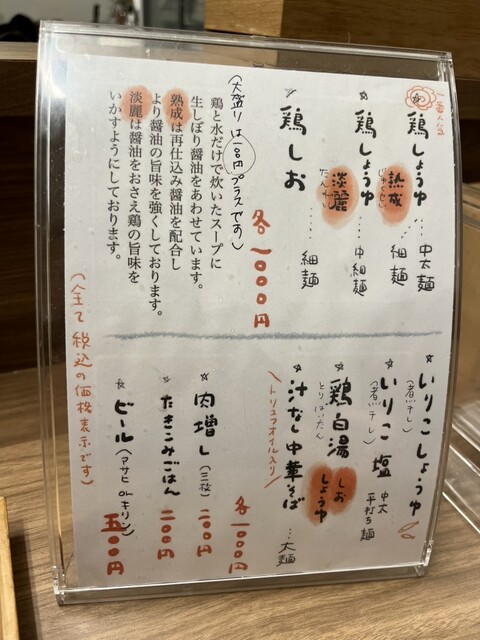 一番人気
鶏しょうゆ 熟成 じゅくせい …… 中太麺 細麺
鶏しょうゆ 淡麗 たんれい …… 中細麺
鶏しお …… 細麺
各一〇〇〇円
(大盛りは100円プラスです)
鶏と水だけで炊いたスープに
生しぼり醤油をあわせています。
熟成は再仕込み醤油を配合し
より醤油の旨味を強くしております。
淡麗は醤油をおさえ鶏の旨味を
いかすようにしております。
いりこしょうゆ
(煮干し)
いりこ塩
(煮干し)
中太 平打ち麺
鶏白湯 しお しょうゆ
とりぱいたん
汁なし中華そば …太麺
トリュフオイル入り
各一〇〇〇円
肉増し(三枚) 二〇〇円
たきこみごはん 二〇〇円
ビール(アサヒorキリン) 五〇〇円
(全て税込の価格表示です)